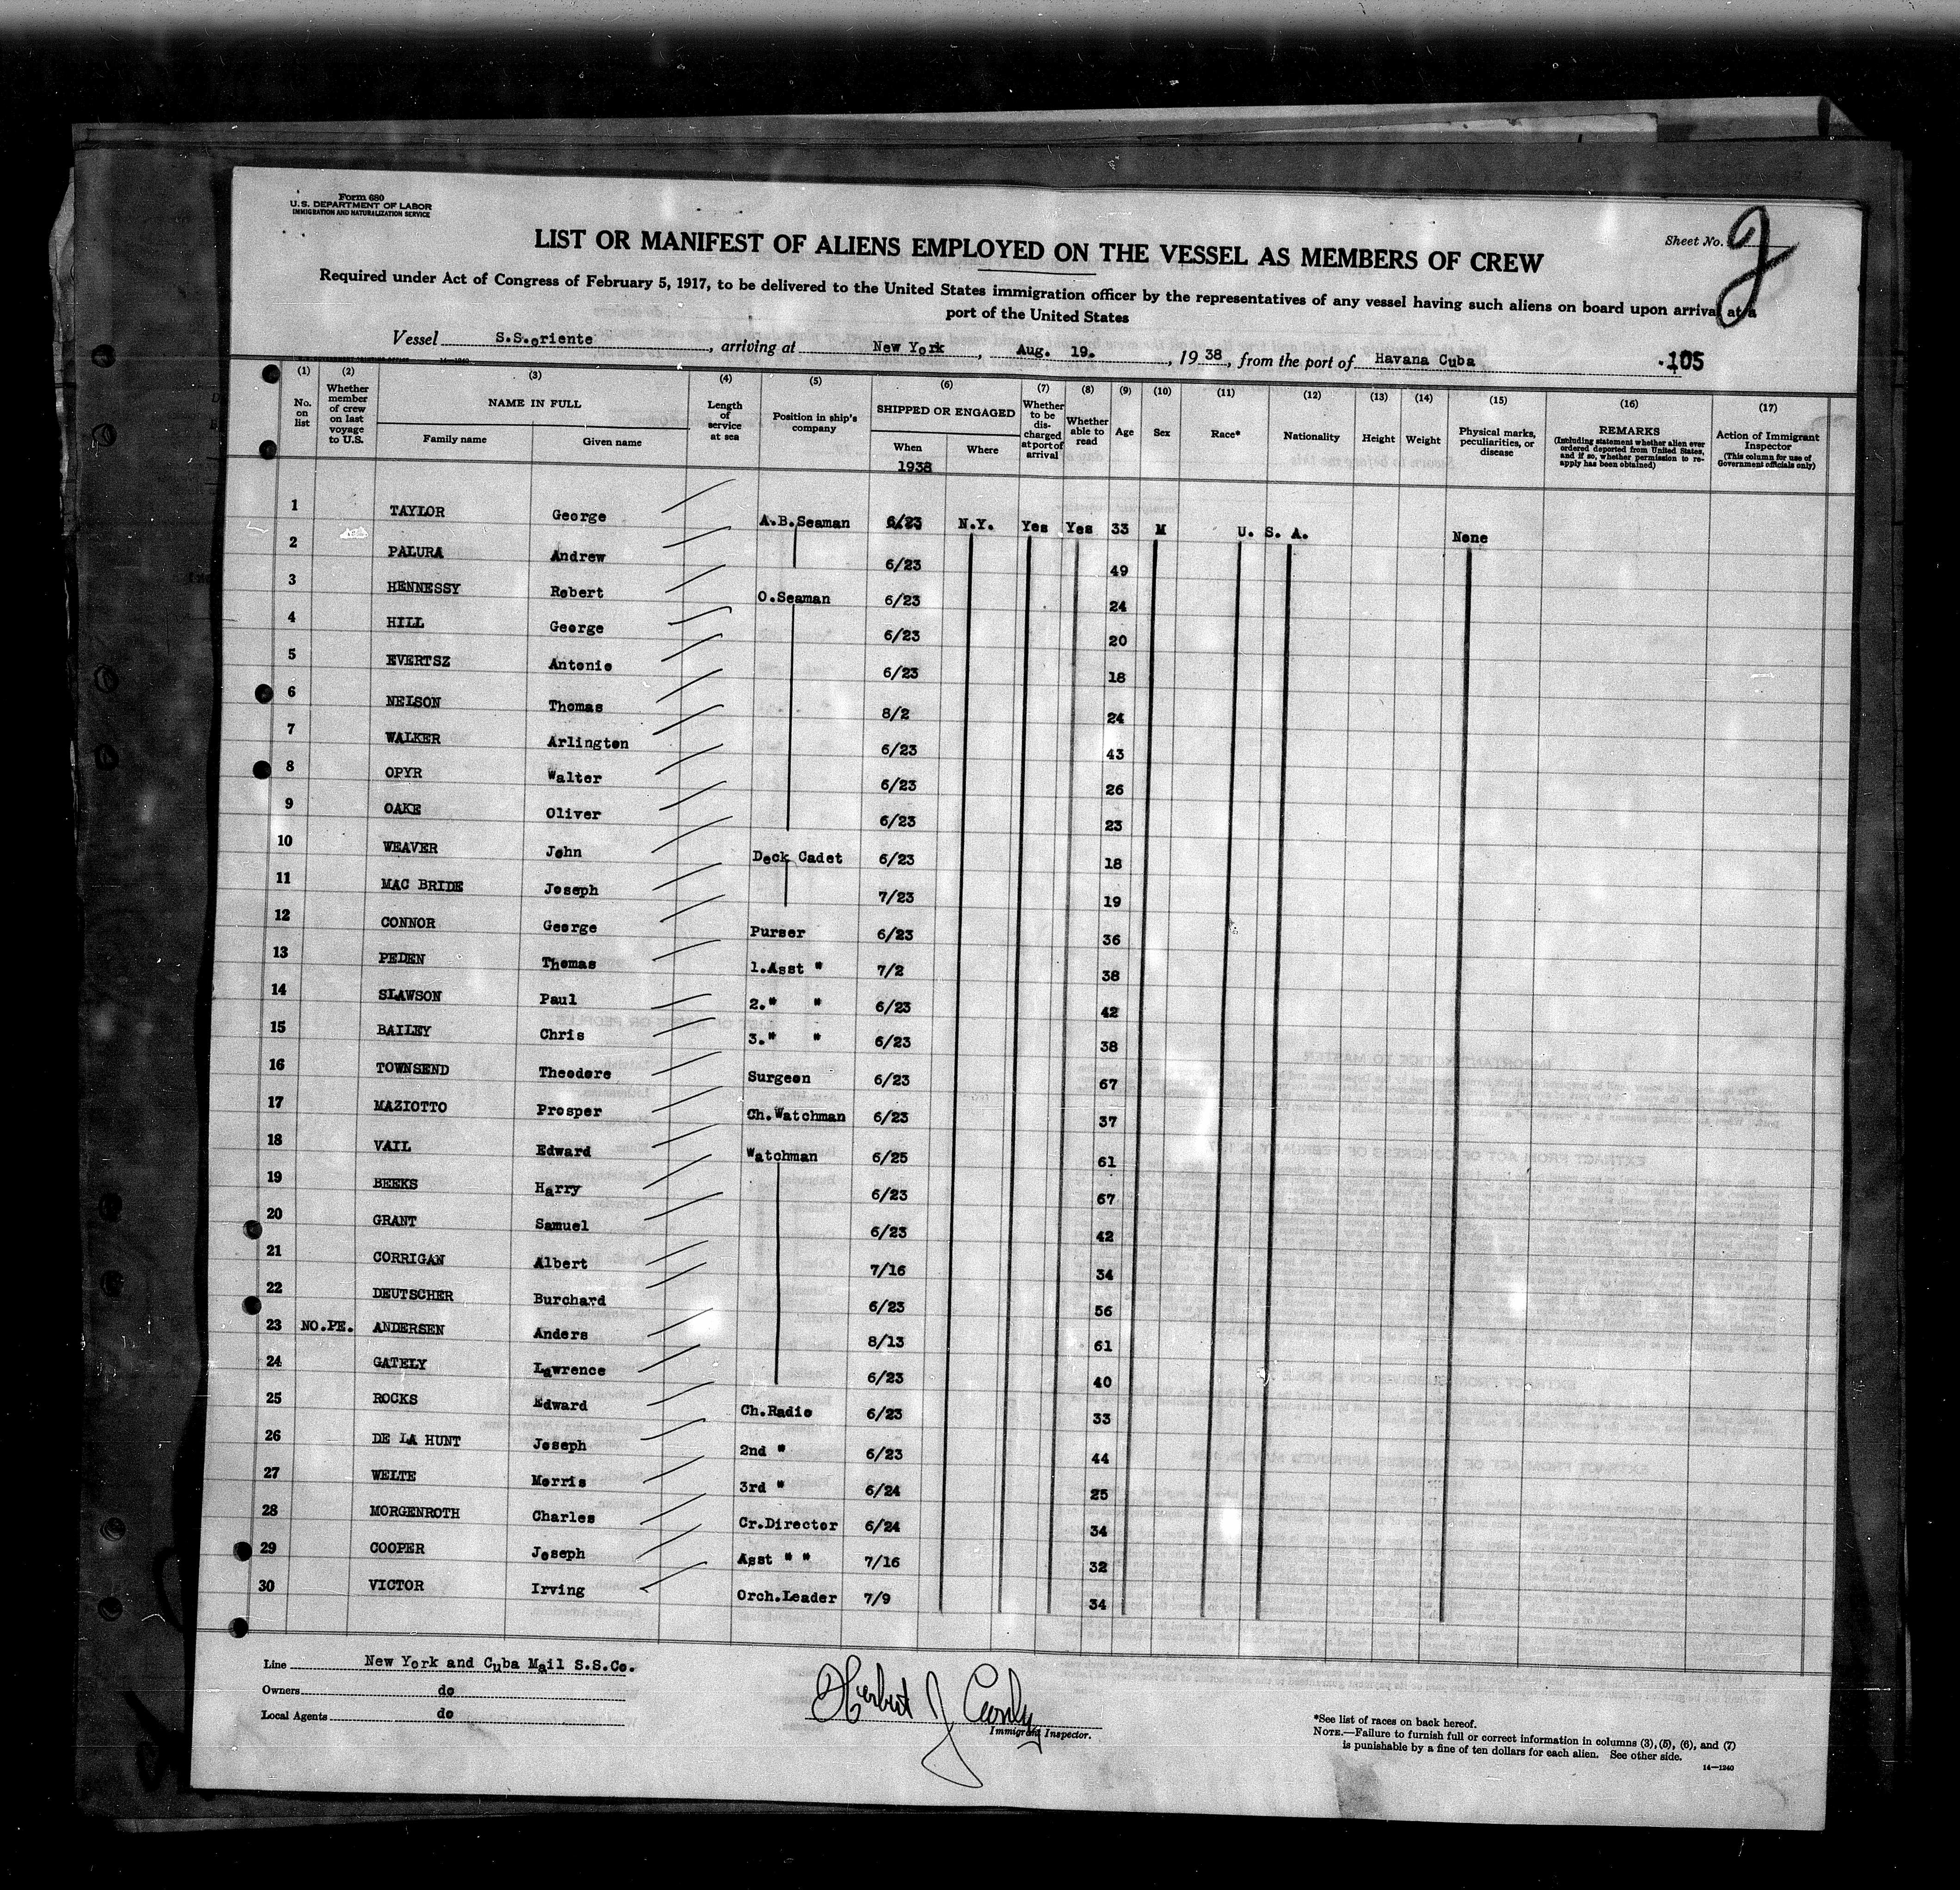 Form 680
U.S. DEPARTMENT OF LABOR
IMMIGRATION AND NATURALIZATION SERVICE
Sheet No. 2
LIST OR MANIFEST OF ALIENS EMPLOYED ON THE VESSEL AS MEMBERS OF CREW
Required under Act of Congress of February 5, 1917, to be delivered to the United States immigration officer by the representatives of any vessel having such aliens on board upon arrival at a
port of the United States
Vessel S.S.oriente, arriving at New York, Aug. 19., 1938, from the port of Havana Cuba 105
14-1240
(1) No. on list (2) Whether member of crew on last voyage to U.S. (3) NAME IN FULL Family name Given name (4) Length of service at sea (5) Position in ship's company (6) SHIPPED OR ENGAGED When Where (7) Whether to be discharged at port of arrival (8) Whether able to read (9) Age (10) Sex (11) Race* (12) Nationality (13) Height (14) Weight (15) Physical marks, peculiarities, or disease (16) REMARKS (Including statement whether alien ever ordered deported from United States, and if so, whether permission to re-apply has been obtained) (17) Action of Immigrant Inspector (This column for use of Government officials only)
1938
1 TAYLOR George A.B.Seaman 6/23 N.Y. Yes Yes 33 M U. S. A. None
2 PALURA Andrew 6/23 49
3 HENNESSY Robert O.Seaman 6/23 24
4 HILL George 6/23 20
5 EVERTSZ Antonio 6/23 18
6 NELSON Thomas 8/2 24
7 WALKER Arlington 6/23 43
8 OPYR Walter 6/23 26
9 OAKE Oliver 6/23 23
10 WEAVER John Deck Cadet 6/23 18
11 MAC BRIDE Joseph 7/23 19
12 CONNOR George Purser 6/23 36
13 PEDEN Thomas 1.Asst " 7/2 38
14 SLAWSON Paul 2." " 6/23 42
15 BAILEY Chris 3." " 6/23 38
16 TOWNSEND Theodore Surgeon 6/23 67
17 MAZIOTTO Prosper Ch.Watchman 6/23 37
18 VAIL Edward Watchman 6/25 61
19 BEEKS Harry 6/23 67
20 GRANT Samuel 6/23 42
21 CORRIGAN Albert 7/16 34
22 DEUTSCHER Burchard 6/23 56
23 NO.PE. ANDERSEN Anders 8/13 61
24 GATELY Lawrence 6/23 40
25 ROCKS Edward Ch.Radio 6/23 33
26 DE LA HUNT Joseph 2nd " 6/23 44
27 WELTE Morris 3rd " 6/24 25
28 MORGENROTH Charles Cr.Director 6/24 34
29 COOPER Joseph Asst " " 7/16 32
30 VICTOR Irving Orch.Leader 7/9 34
Line New York and Cuba Mail S.S.Co.
Owners do
Local Agents do
Herbert J
Immigrant Inspector.
*See list of races on back hereof.
NOTE.—Failure to furnish full or correct information in columns (3), (5), (6), and (7)
is punishable by a fine of ten dollars for each alien. See other side.
14—1240